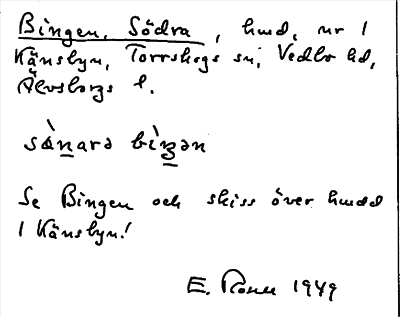 Bingen, Södra, hmd, nr 1
Känsbyn, Torrskogs sn, Vedbo hd,
Älvsborgs l.
sȧ̀narə bìŋən
Se Bingen och skiss över hmdd
i Känsbyn!
E. 1949